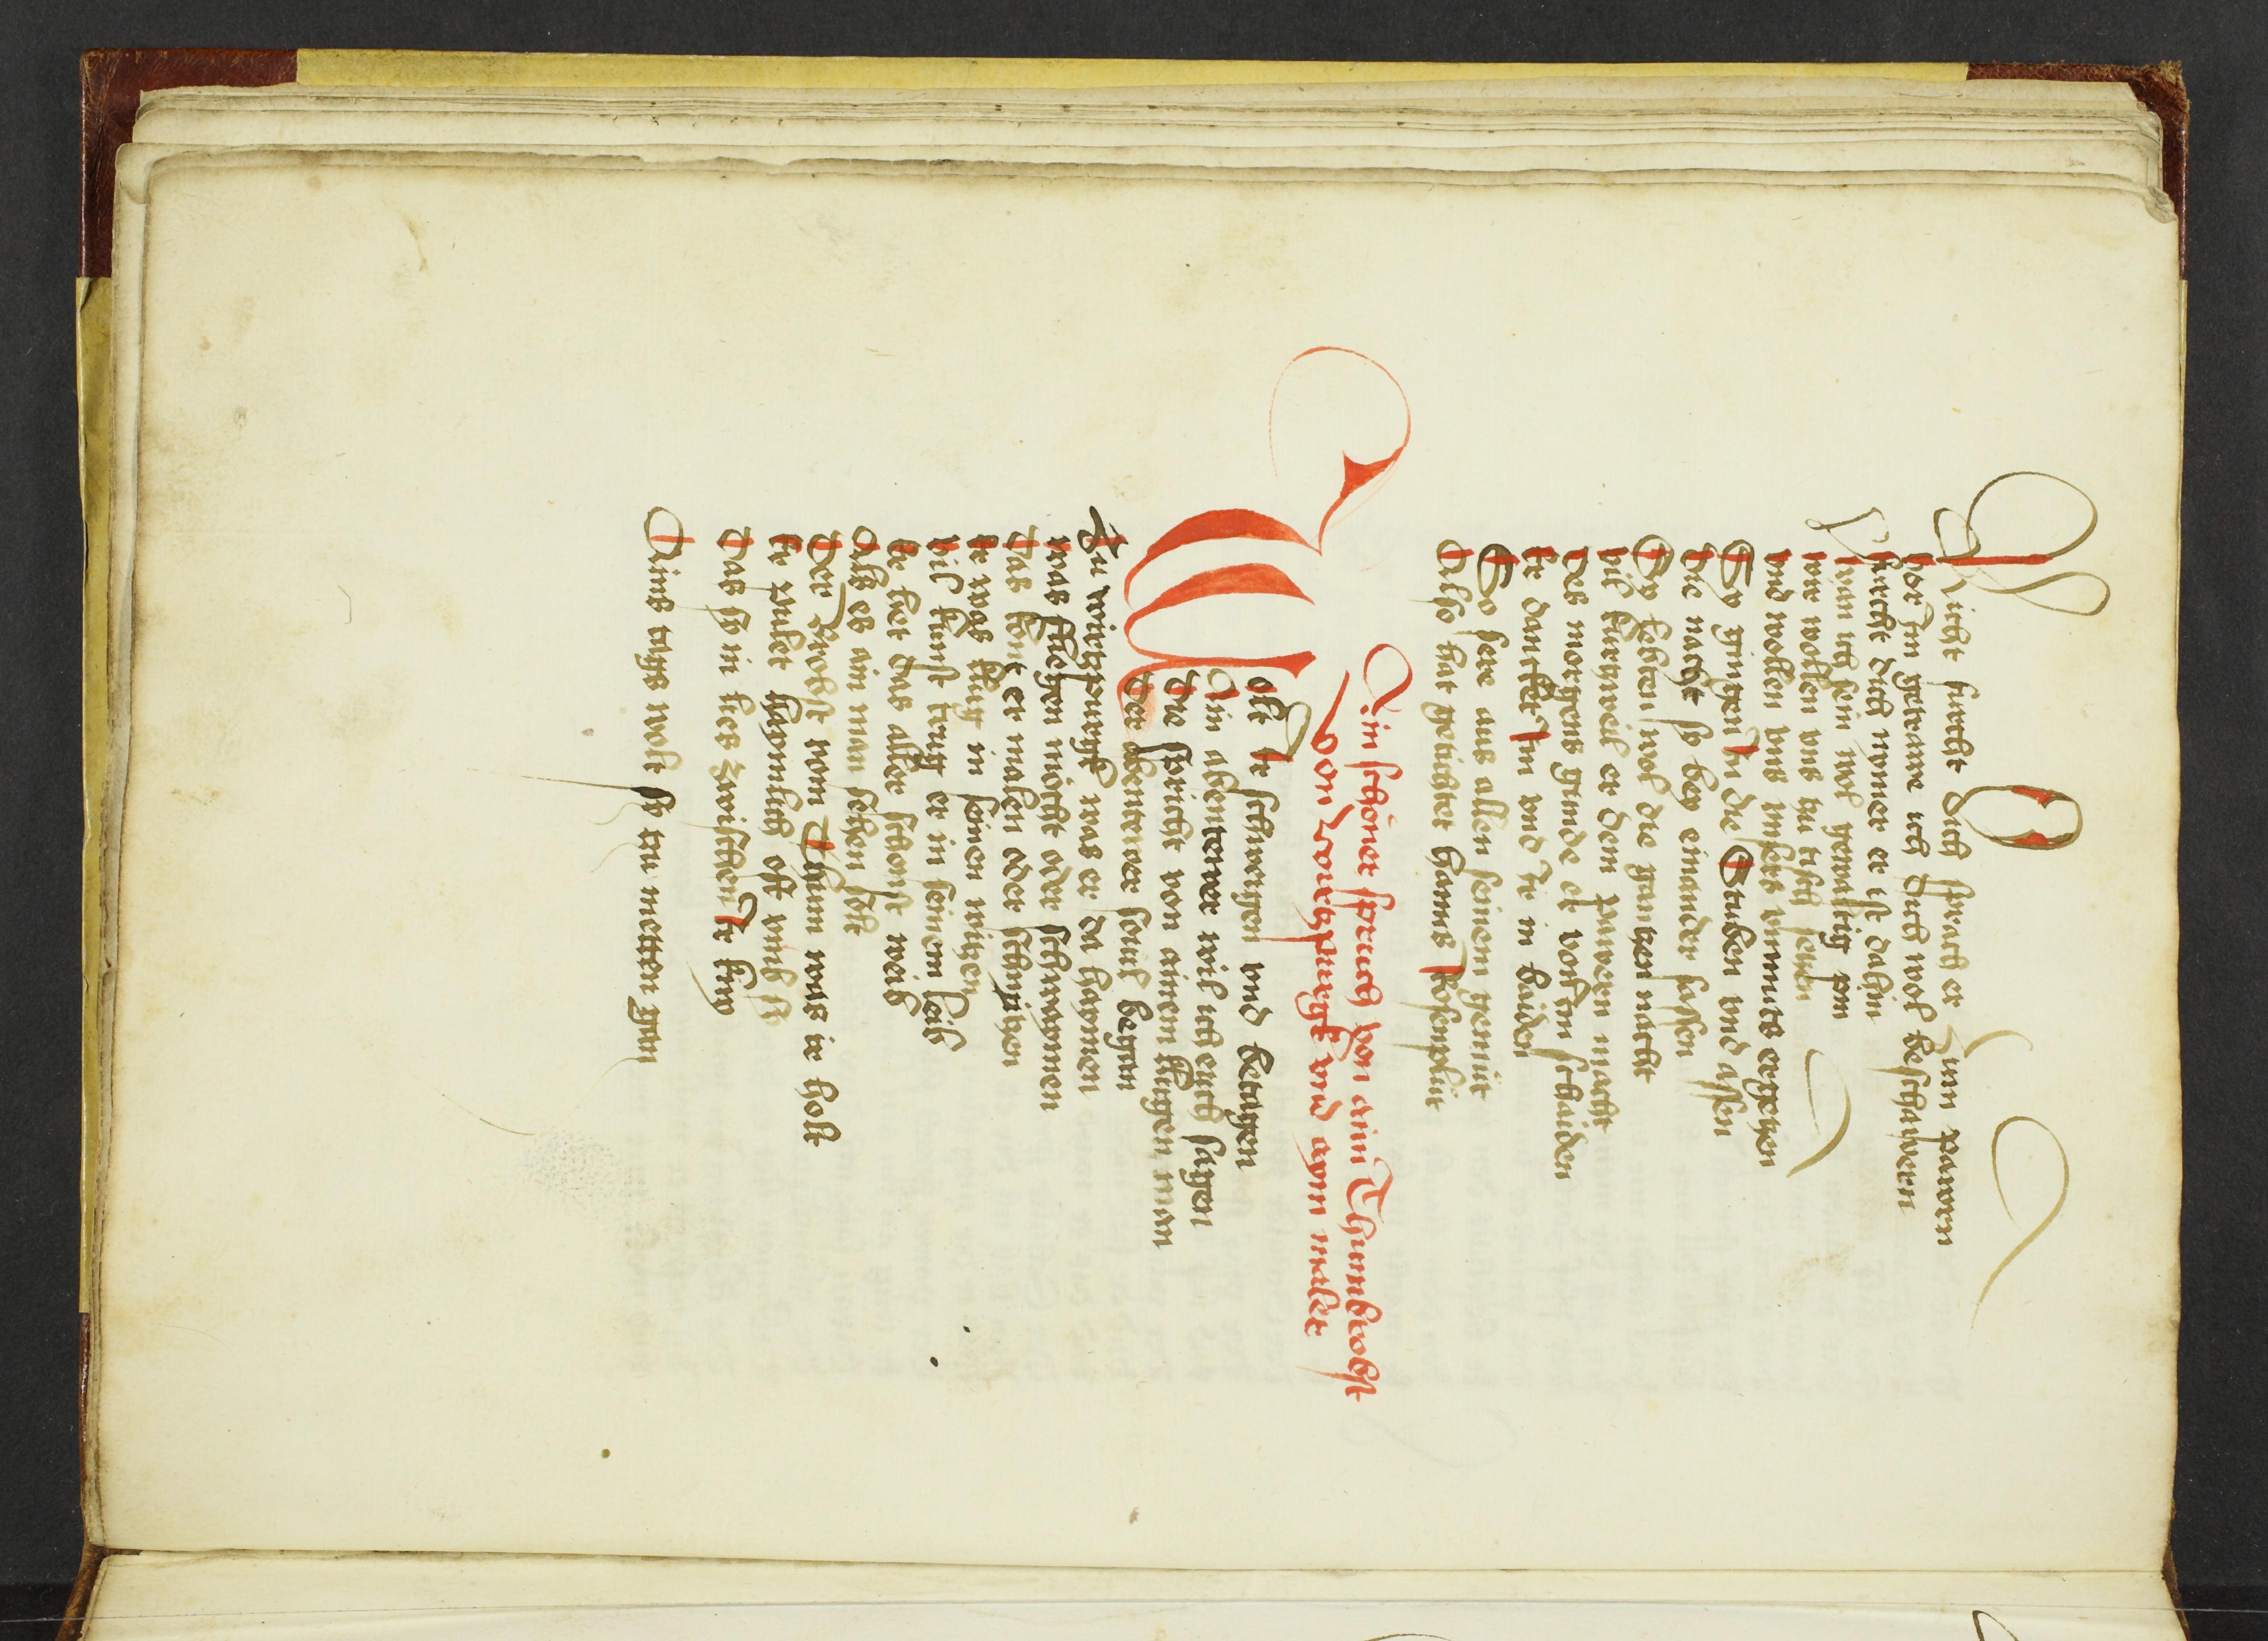 Nicht furcht dich sprach er zum pawern
vor Im getraw ich dich wol beschawern
furcht dich nymer er ist dahin
wan ich sein wol gewaltig pin
wir wollen vns zu tisch seczen
vnd wollen vns vnsers vnmuts ergeczen
Sy gingen In die Stuben vnd assen
Die nacht sy bey einander sassen
Sy lebten wol die ganczen nacht
vil kurczweil er dem pawern macht
Des morgens gunde er von dan schaiden
Er dancket Im vnd Ir in baiden
So sere aus allen seinem gemut
Also hat getichtet hanns Rosenplüt
Ein schöner spruch von aim Thumbrobst
von wirtzpurgk vnd aym maler
Wolt Ir schweigen vnd betagen
Ein abentewer wil ich euch sagen
Die spricht von ainem klugen man
Der abentewer souil began
Zu wirtzpurgk was er da haymen
was fliegen möcht oder schwaymen
Das kont er malen oder schniczen
Er was klug in seinen wiczen
vil kunst trug er in seinem leib
Er het das aller schonst weib
Als es ain man sehen solt
Der Brobst vom Thum was ir holt
Er pulet haymlich oft vmb sy
Das sy in lies zwischen Ir knÿ
Eins tags wolt sy zu metten gan